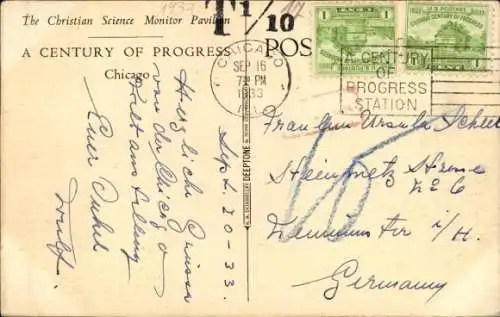 The Christian Science Monitor Pavilion
A CENTURY OF PROGRESS
Chicago
1933
T 1/10
POS
CHICAGO
SEP 16
7 PM
1933
A CENTURY
OF
PROGRESS
STATION
1
1
U.S. POSTAGE
Herzliche Grüsse
von der Chicago
Weltausstellung
Euer Onkel
Sept. 20-33.
DEEPTONE
Ursula
Steinmetz Strasse
No 6
Neumünster i/H.
Germany